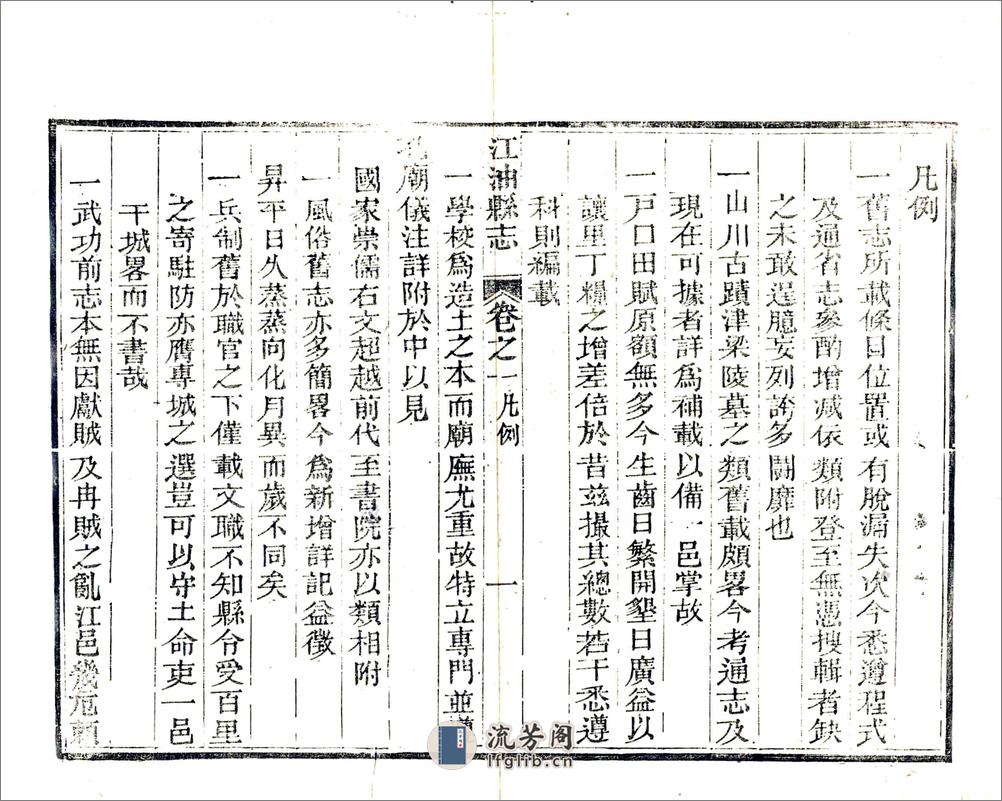 凡例
一舊志所載條目位置或有脫漏失次今悉遵程式
及通省志參酌增減依類附登至無憑搜輯者缺
之未敢逞臆妄列誇多鬭靡也
一山川古蹟津梁陵墓之類舊載頗畧今考通志及
現在可據者詳爲補載以備一邑掌故
一戸口田賦原額無多今生齒日繁開墾日廣益以
讓里丁糧之增差倍於昔兹撮其總數若干悉遵
科則編載
江油縣志 卷之一 凡例 一
一學校爲造士之本而廟廡尤重故特立專門並
廟儀注詳附於中以見
國家崇儒右文起越前代至書院亦以類相附
一風俗舊志亦多簡畧今爲新增詳記益徵
昇平日久蒸蒸向化月異而歲不同矣
一兵制舊於職官之下僅載文職不知縣令受百里
之寄駐防亦膺專城之選豈可以守土命吏一邑
干城畧而不書哉
一武功前志本無因獻賊及冉賊之亂江邑幾危賴
流芳阁
lfglib.cn